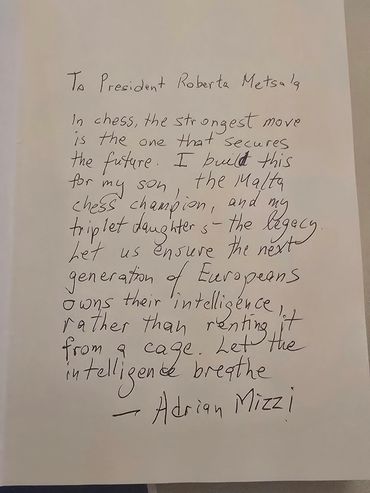 To President Roberta Metsola
In chess, the strongest move
is the one that secures
the future. I build this
for my son, the Malta
chess champion, and my
triplet daughters - the legacy.
Let us ensure the next
generation of Europeans
owns their intelligence,
rather than renting it
from a cage. Let the
intelligence breathe
— Adrian Mizzi